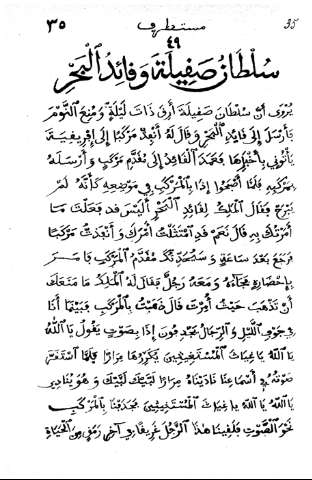 ٣٥ مستطرف 35
٤٩
سُلْطَانُ صَقِيلَةَ وَقَائِدُ الْبَحْرِ
يُرْوَى أَنَّ سُلْطَانَ صَقِيلَةَ أَرِقَ ذَاتَ لَيْلَةٍ وَمُنِعَ النَّوْمَ
فَأَرْسَلَ إِلَى قَائِدِ الْبَحْرِ وَقَالَ لَهُ أَنْفِذْ مَرْكَبًا إِلَى إِفْرِيقِيَةَ
يَأْتُونِي بِأَخْبَارِهَا فَعَمَدَ الْقَائِدُ إِلَى مُقَدَّمِ مَرْكَبٍ وَأَرْسَلَهُ
بِمَرْكَبِهِ فَلَمَّا أَصْبَحُوا إِذَا بِالْمَرْكَبِ فِي مَوْضِعِهِ كَأَنَّهُ لَمْ
يَبْرَحْ فَقَالَ الْمَلِكُ لِقَائِدِ الْبَحْرِ أَلَيْسَ قَدْ فَعَلْتَ مَا
أَمَرْتُكَ بِهِ قَالَ نَعَمْ قَدِ امْتَثَلْتُ أَمْرَكَ وَأَنْفَذْتُ مَرْكَبًا
فَرَجَعَ بَعْدَ سَاعَةٍ وَسَيُحَدِّثُكَ مُقَدَّمُ الْمَرْكَبِ فَأَمَرَ
بِإِحْضَارِهِ فَجَاءَ وَمَعَهُ رَجُلٌ فَقَالَ لَهُ الْمَلِكُ مَا مَنَعَكَ
أَنْ تَذْهَبَ حَيْثُ أُمِرْتَ قَالَ ذَهَبْتُ بِالْمَرْكَبِ فَبَيْنَمَا أَنَا
فِي جَوْفِ اللَّيْلِ وَالرِّجَالُ يَجْدِفُونَ إِذَا بِصَوْتٍ يَقُولُ يَا اللّٰهُ
يَا اللّٰهُ يَا غِيَاثَ الْمُسْتَغِيثِينَ يُكَرِّرُهَا مِرَارًا فَلَمَّا اسْتَقَرَّ
صَوْتُهُ فِي أَسْمَاعِنَا نَادَيْنَاهُ مِرَارًا لَبَّيْكَ لَبَّيْكَ وَهُوَ يُنَادِي
يَا اللّٰهُ يَا اللّٰهُ يَا غِيَاثَ الْمُسْتَغِيثِينَ فَجَدَفْنَا بِالْمَرْكَبِ
نَحْوَ الصَّوْتِ فَلَقِينَا هٰذَا الرَّجُلَ غَرِيقًا فِي آخِرِ رَمَقٍ مِنَ الْحَيَاةِ